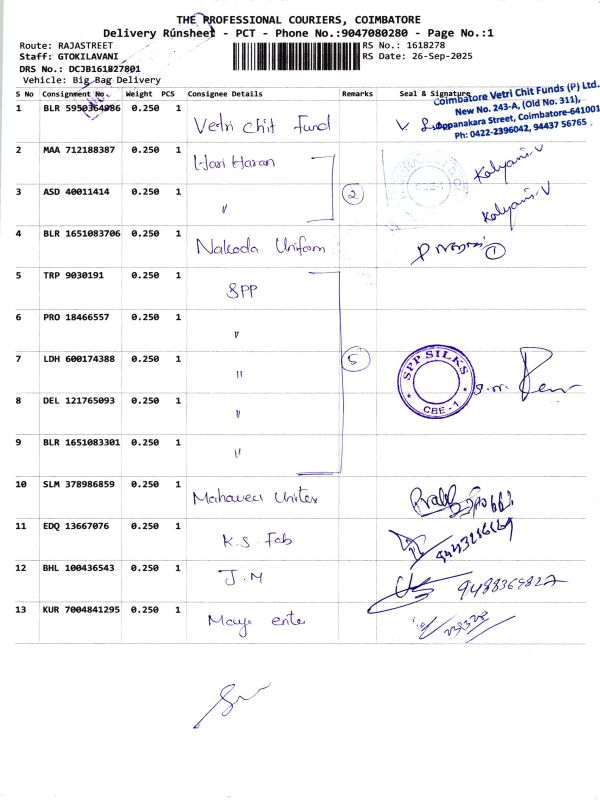 THE PROFESSIONAL COURIERS, COIMBATORE
Delivery Runsheet - PCT - Phone No.:9047080280 - Page No.:1
Route: RAJASTREET
Staff: GTOKILAVANI
DRS No.: DCJB161827801
Vehicle: Big Bag Delivery
RS No.: 1618278
RS Date: 26-Sep-2025
S No Consignment No. Weight PCS Consignee Details Remarks Seal & Signature
Coimbatore Vetri Chit Funds (P) Ltd.
New No. 243-A, (Old No. 311),
Oppanakara Street, Coimbatore-641001
Ph: 0422-2396042, 94437 56765
1 BLR 5950364986 0.250 1 Vetri Chit Fund V.
2 MAA 712188387 0.250 1 Hari Haran Kalyani. V
3 ASD 40011414 0.250 1 〃 2 Kalyani. V
4 BLR 1651083706 0.250 1 Nakoda Uniform 1
5 TRP 9030191 0.250 1 SPP
6 PRO 18466557 0.250 1 〃
7 LDH 600174388 0.250 1 〃 5
SPP SILKS
CBE - 1
8 DEL 121765093 0.250 1 〃
9 BLR 1651083301 0.250 1 〃
10 SLM 378986859 0.250 1 Mahaveer Unitex
11 EDQ 13667076 0.250 1 K.S. Fab
12 BHL 100436543 0.250 1 J.M
13 KUR 7004841295 0.250 1